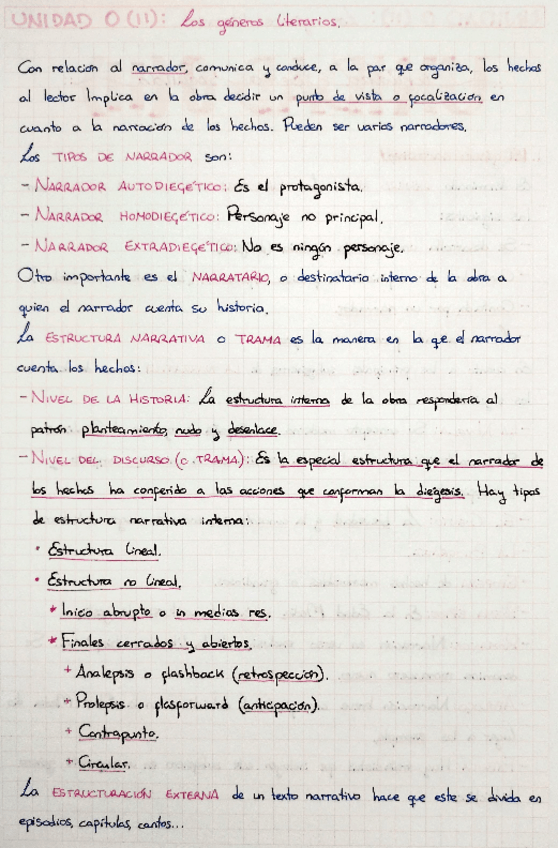 UNIDAD 0 (11): Los géneros literarios.
Con relación al narrador, comunica y conduce, a la par que organiza, los hechos
al lector Implica en la obra decidir un punto de vista o focalización, en
cuanto a la narración de los hechos. Pueden ser varios narradores.
Los TIPOS DE NARRADOR son:
- NARRADOR AUTODIEGÉTICO: Es el protagonista.
- NARRADOR HOMODIEGÉTICO: Personaje no principal.
- NARRADOR EXTRADIEGÉTICO: No es ningún personaje.
Otro importante es el NARRATARIO, o destinatario interno de la obra a
quien el narrador cuenta su historia.
La ESTRUCTURA NARRATIVA O TRAMA es la manera en la que el narrador
cuenta los hechos:
- NIVEL DE LA HISTORIA: La estructura interna de la obra respondería al
patrón planteamiento, nudo y desenlace.
- NIVEL DEL DISCURSO (O TRAMA): Es la especial estructura que el narrador de
los hechos ha conferido a las acciones que conforman la diégesis. Hay tipos
de estructura narrativa interna:
• Estructura lineal.
• Estructura no lineal.
* Inico abrupto o in medias res.
* Finales cerrados y abiertos.
+ Analepsis o flashback (retrospección).
+ Prolepsis o flasforward (anticipación).
+ Contrapunto.
+ Circular.
La ESTRUCTURACIÓN EXTERNA de un texto narrativo hace que este se divida en
episodios, capítulos, cantos...